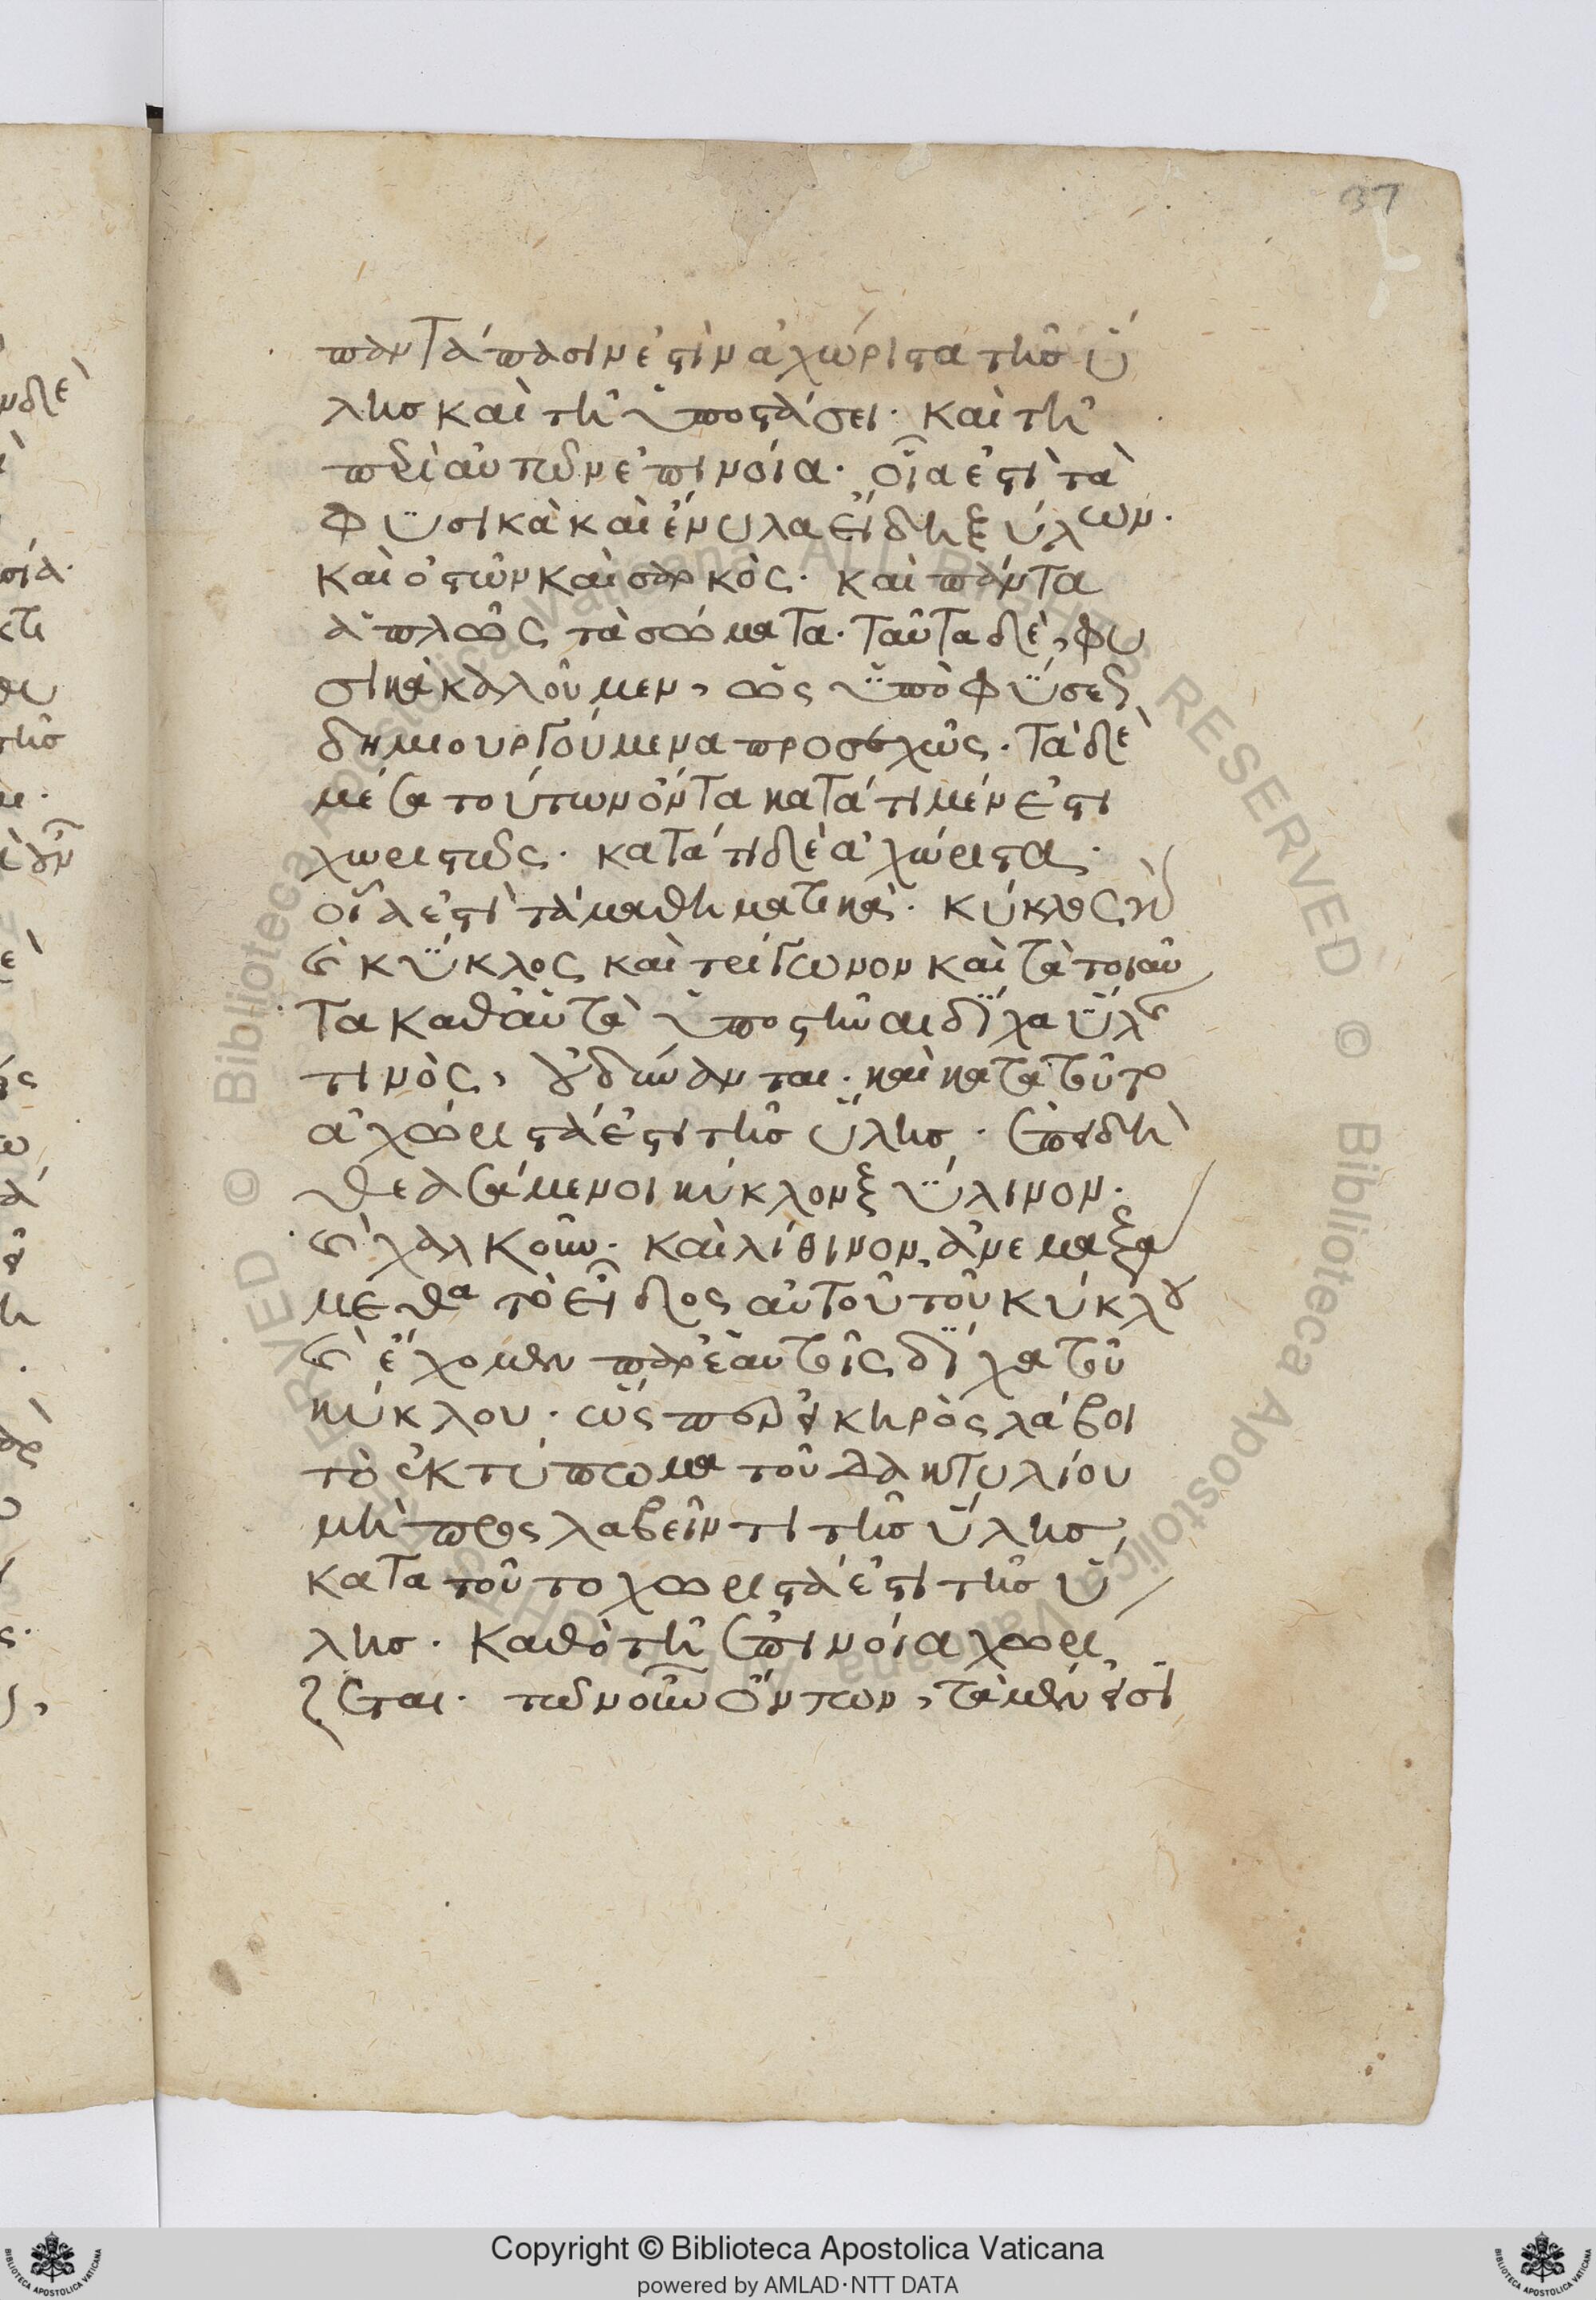 37
πανταπάσιν ἐστὶν ἀχώριστα τῆσ ὕ
λησ καὶ τῆ ὑποστάσει· καὶ τῆ
περὶ αὐτῶν ἐπινοία· οἷα ἐστὶ τὰ
φϋσικὰ καὶ ἔνυλα εἴδη ξύλων·
καὶ ὀστῶν καὶ σαρκὸς· καὶ πάντα
ἁπλῶς τὰ σώματα· ταῦτα δὲ, φυ
σικὰ καλοῦμεν, ὡς ὑπὸ φϋσεως
δημιουργούμενα προσεχῶς· Τὰ δὲ
μέσα τούτων ὄντα κατά τι μέν ἐστι
χωριστῶς· κατά τι δὲ ἀχώριστα·
οἷα ἐστὶ τὰ μαθηματικά· κύκλος γὰρ
καὶ κϋκλος καὶ τρίγωνον καὶ τὰ τοιαῦ
τα καθαὑτὰ ὑποστῆναι δίχα ὕλης
τινὸς, οὐ δύνανται· καὶ κατὰ τοῦτο
ἀχώριστά ἐστι τῆσ ὕλησ· ἐπειδὴ
θεασάμενοι κύκλον ξύλινον·
καὶ χαλκοῦν· καὶ λίθινον, ἀνεμαξά
μεθα τὸ εἶδος αὐτοῦ τοῦ κύκλου
καὶ ἔχομεν παρ ἑαυτοῖς δίχα τοῦ
κύκλου· ὥσπερ εἰ κηρὸς λάβοι
τὸ ἐκτύπωμα τοῦ δακτυλίου
μὴ προςλαβεῖν τι τῆσ ὕλησ,
κατα τοῦτο χωριστά ἐστι τῆσ ὕ
λησ· καθὸ τῆ ἐπινοία χωρί
ζεται· τῶν οὖν ὄντων, τὰ μὲν εἰσὶ
Copyright © Biblioteca Apostolica Vaticana
powered by AMLAD·NTT DATA